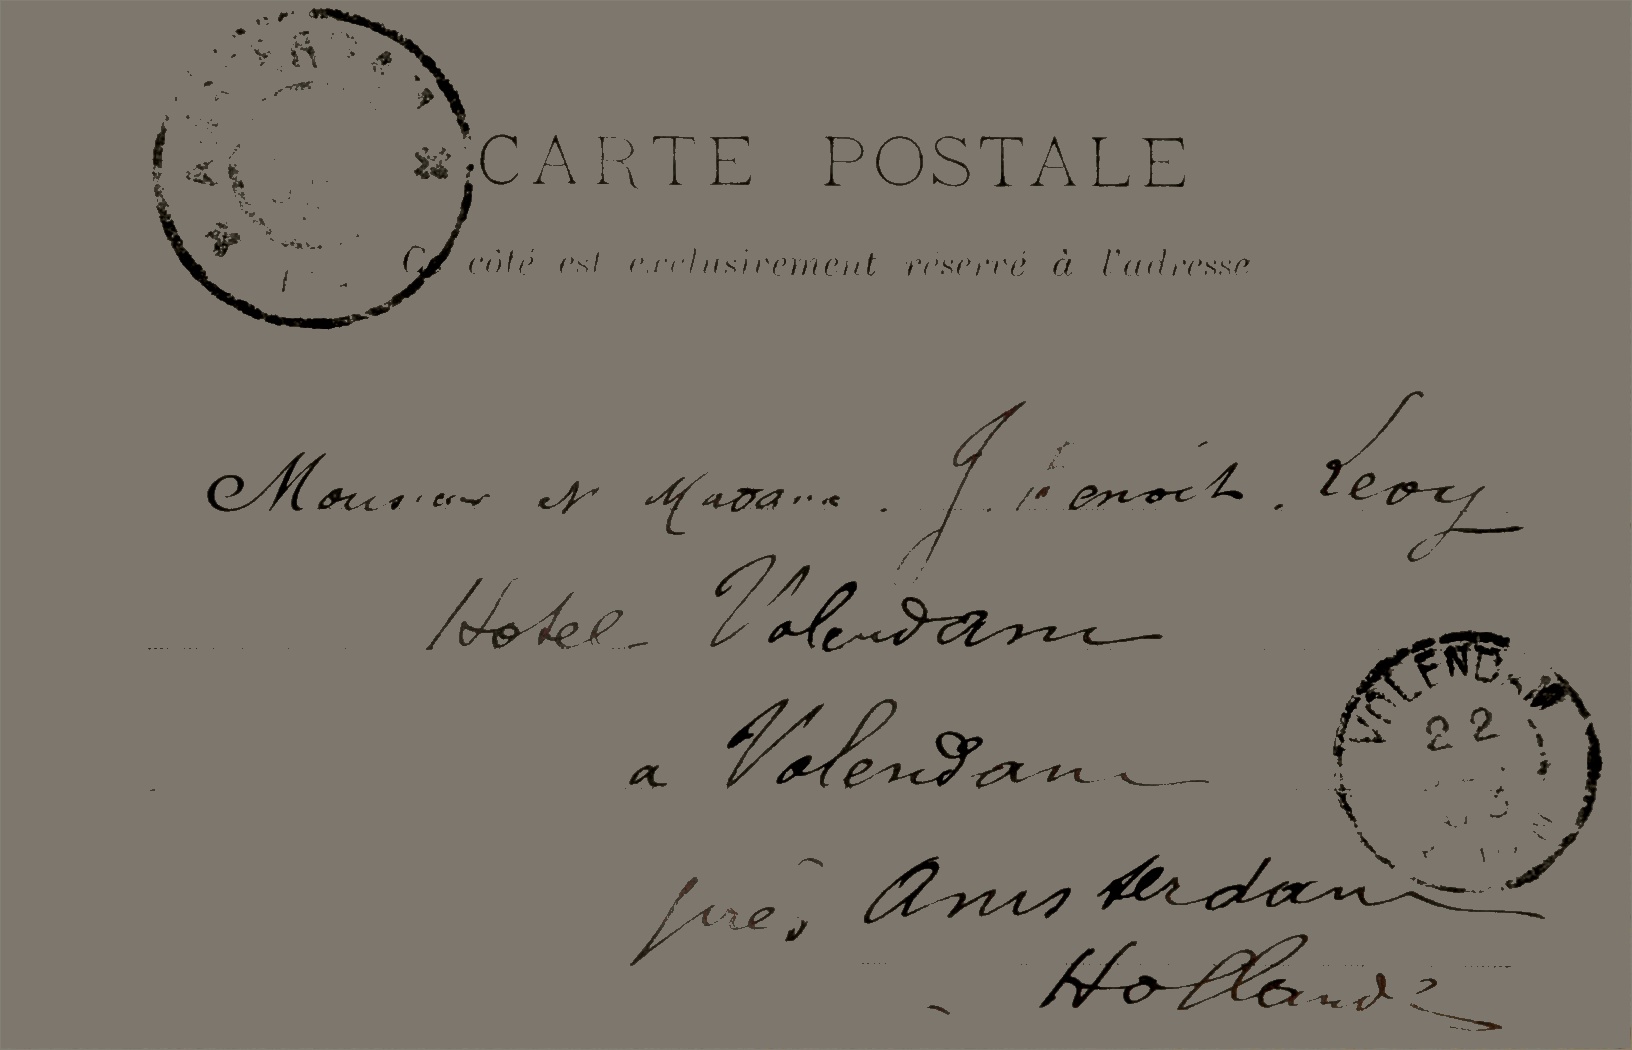 CARTE POSTALE
Ce côté est exclusivement réservé à l'adresse
Monsieur et Madame. J. Benoit. Levy
Hotel Volendam
a Volendam
près Amsterdam
Hollande
VOLENDAM
22